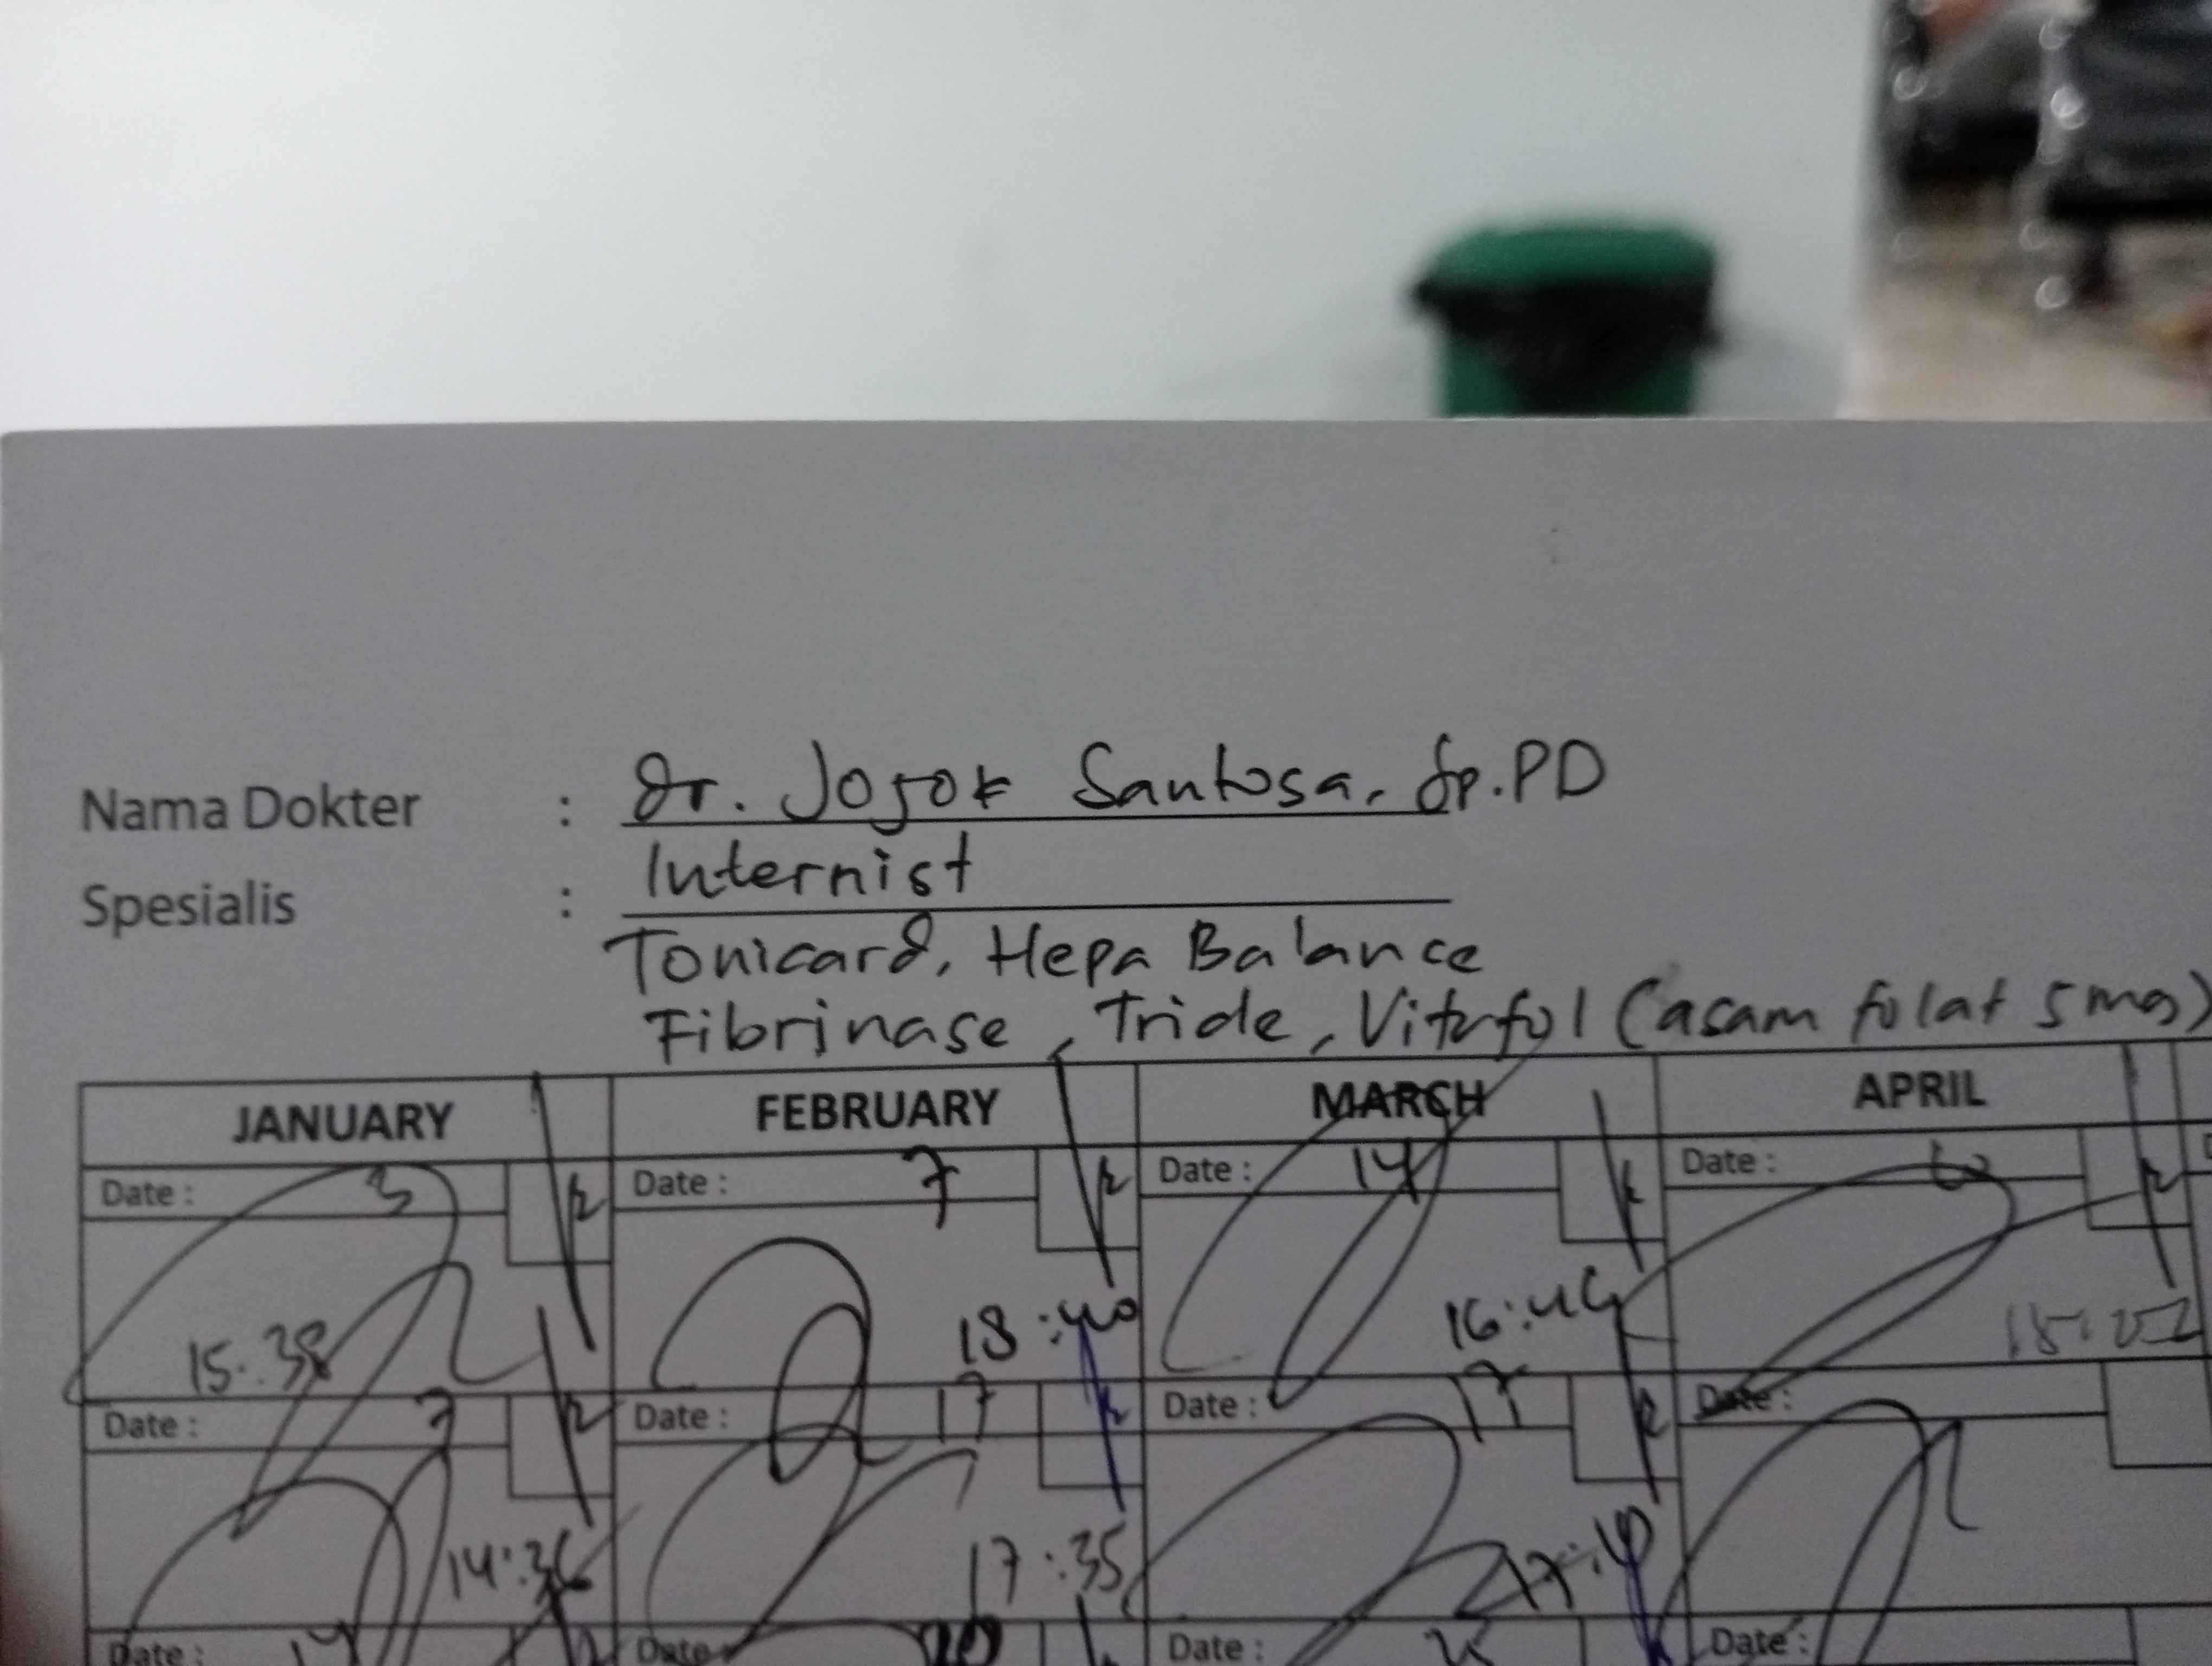 Nama Dokter : dr. Jojok Santosa, Sp.PD
Spesialis : Internist
Tonicard, Hepa Balance
Fibrinase, Tride, Vitrfol (asam folat 5 mg)
JANUARY FEBRUARY MARCH APRIL
Date : 3 Date : 7 Date : 14 Date :
15:38 18:40 16:44
Date : 7 Date : 17 Date : 17 Date :
14:36 17:35
Date : 14 Date Date : Date :